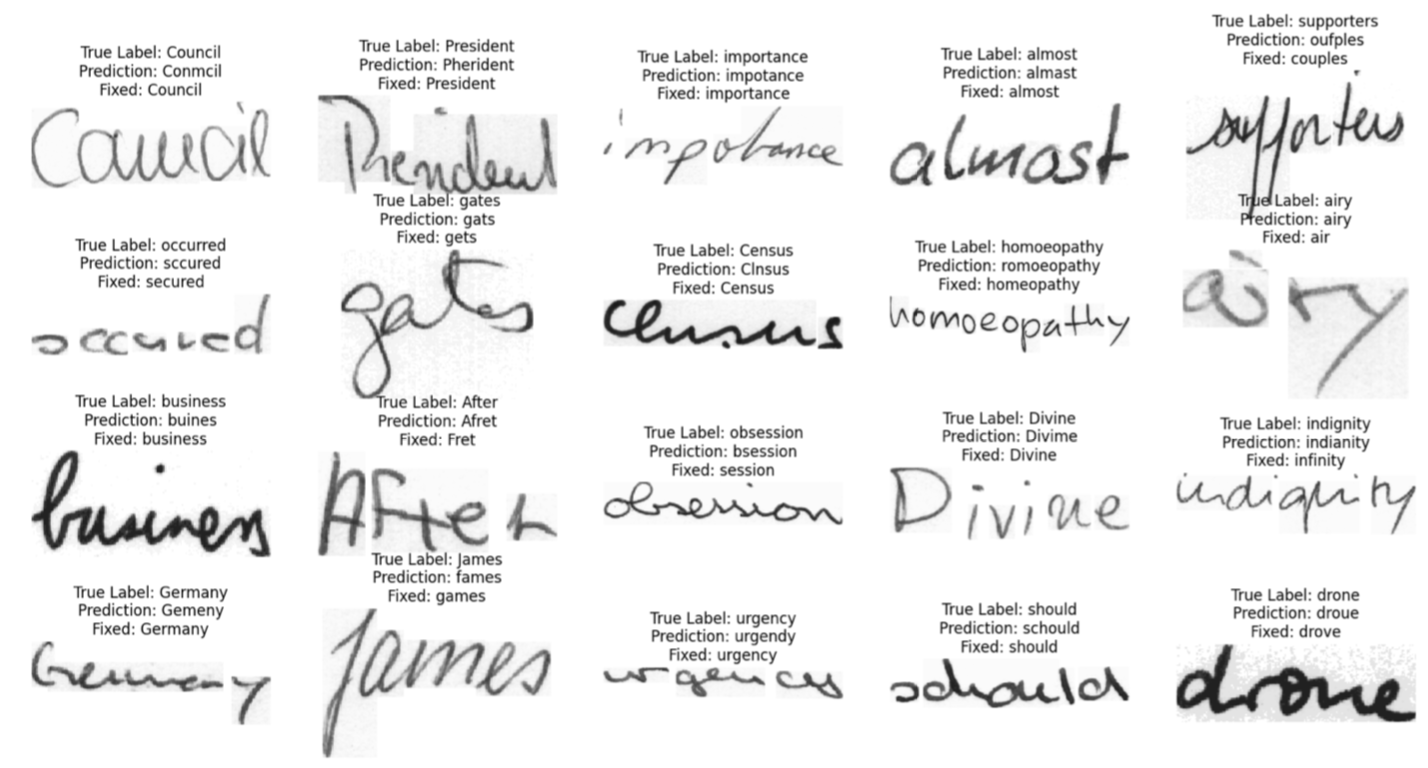 True Label: Council
Prediction: Conmcil
Fixed: Council
Council
True Label: President
Prediction: Pherident
Fixed: President
President
True Label: importance
Prediction: impotance
Fixed: importance
importance
True Label: almost
Prediction: almast
Fixed: almost
almost
True Label: supporters
Prediction: oufples
Fixed: couples
supporters
True Label: occurred
Prediction: sccured
Fixed: secured
occured
True Label: gates
Prediction: gats
Fixed: gets
gates
True Label: Census
Prediction: Clnsus
Fixed: Census
Census
True Label: homoeopathy
Prediction: romoeopathy
Fixed: homeopathy
homoeopathy
True Label: airy
Prediction: airy
Fixed: air
airy
True Label: business
Prediction: buines
Fixed: business
business
True Label: After
Prediction: Afret
Fixed: Fret
After
True Label: obsession
Prediction: bsession
Fixed: session
obsession
True Label: Divine
Prediction: Divime
Fixed: Divine
Divine
True Label: indignity
Prediction: indianity
Fixed: infinity
indignity
True Label: Germany
Prediction: Gemeny
Fixed: Germany
Germany
True Label: James
Prediction: fames
Fixed: games
James
True Label: urgency
Prediction: urgendy
Fixed: urgency
urgency
True Label: should
Prediction: schould
Fixed: should
schould
True Label: drone
Prediction: droue
Fixed: drove
drone